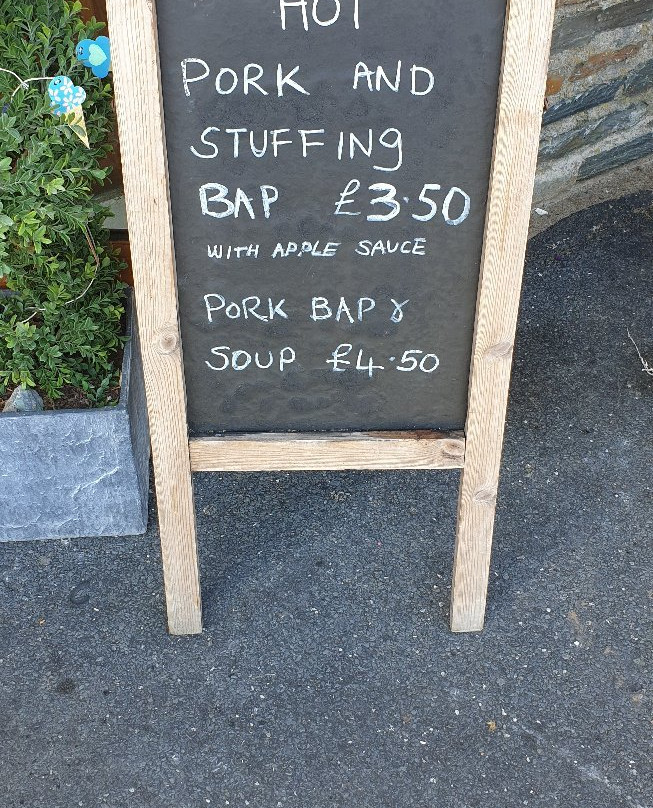 HOT
PORK AND
STUFFING
BAP £3.50
WITH APPLE SAUCE
PORK BAP &
SOUP £4.50